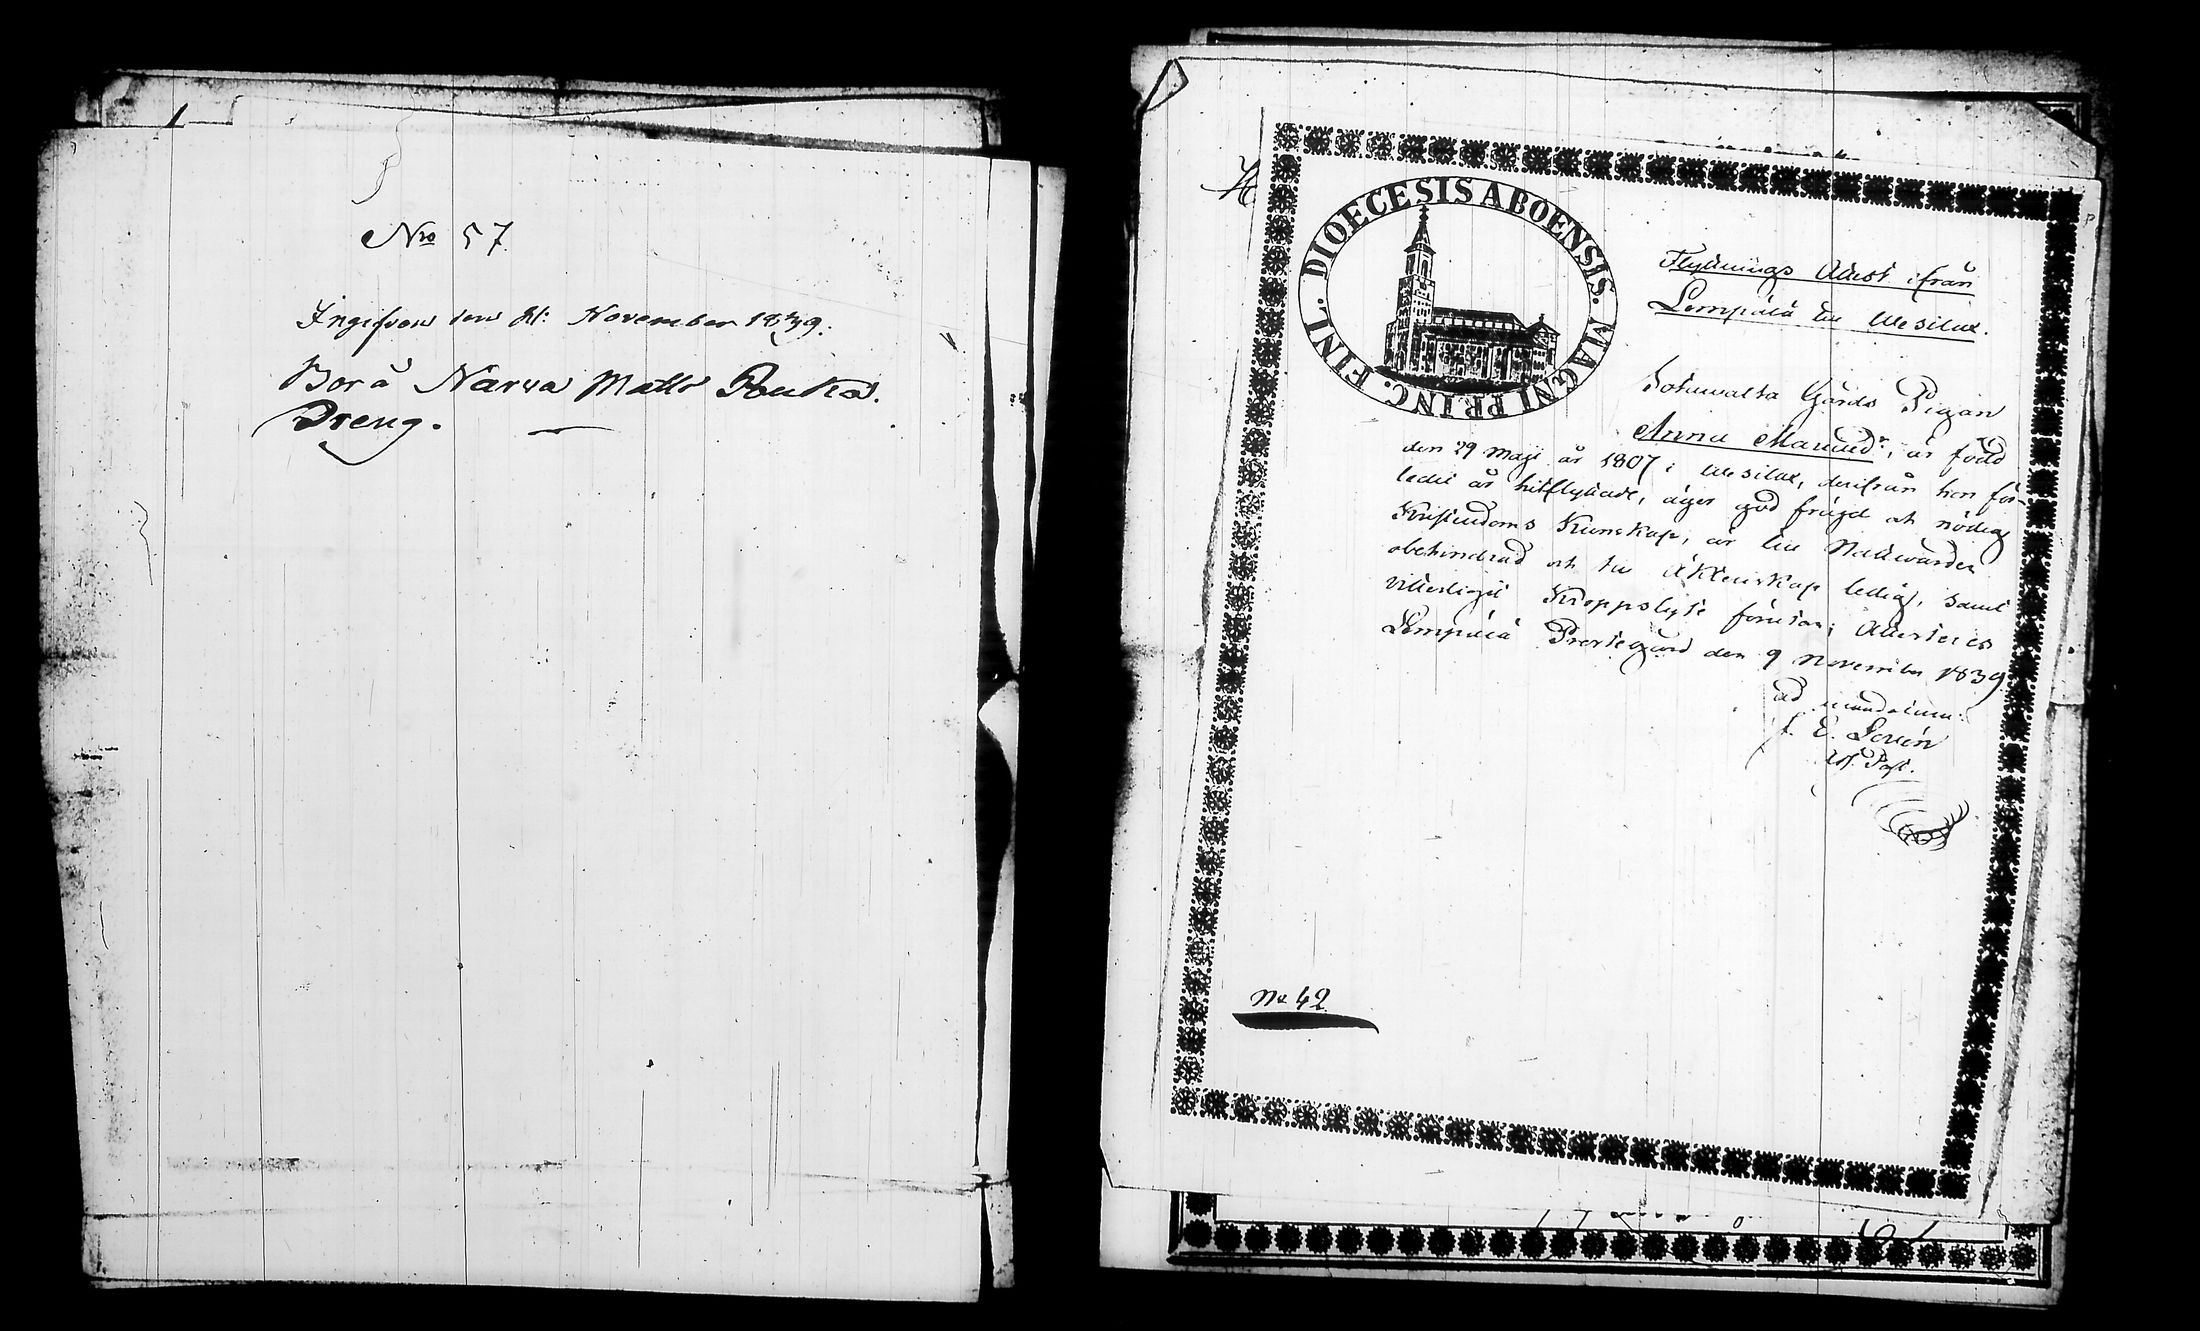 Nro 57.
Ingifven den November 1839.
Bor å Narva Matts Pouka.
Dreng.
DIOECESIS ABOENSIS. MAGNI PRINC. FINL.
Flyttnings Attest ifrån
Lempälä till Wesilax.
Sotawalta Gårds Pigan
Anna Mattsdr, är född
den 29 Maji år 1807 i Wesilax, derifrån hon för-
ledit år hitflyttade, äger god frägd och nödig
Kristendoms Kunskap, är till Nattwarden
obehindrad och till Äktenskap ledig, samt
vitterligit Kroppslyte förutan; Attesteras
Lempälä Prestegård den 9 November 1839.
ad mandatum:
E.
Past.
No 42